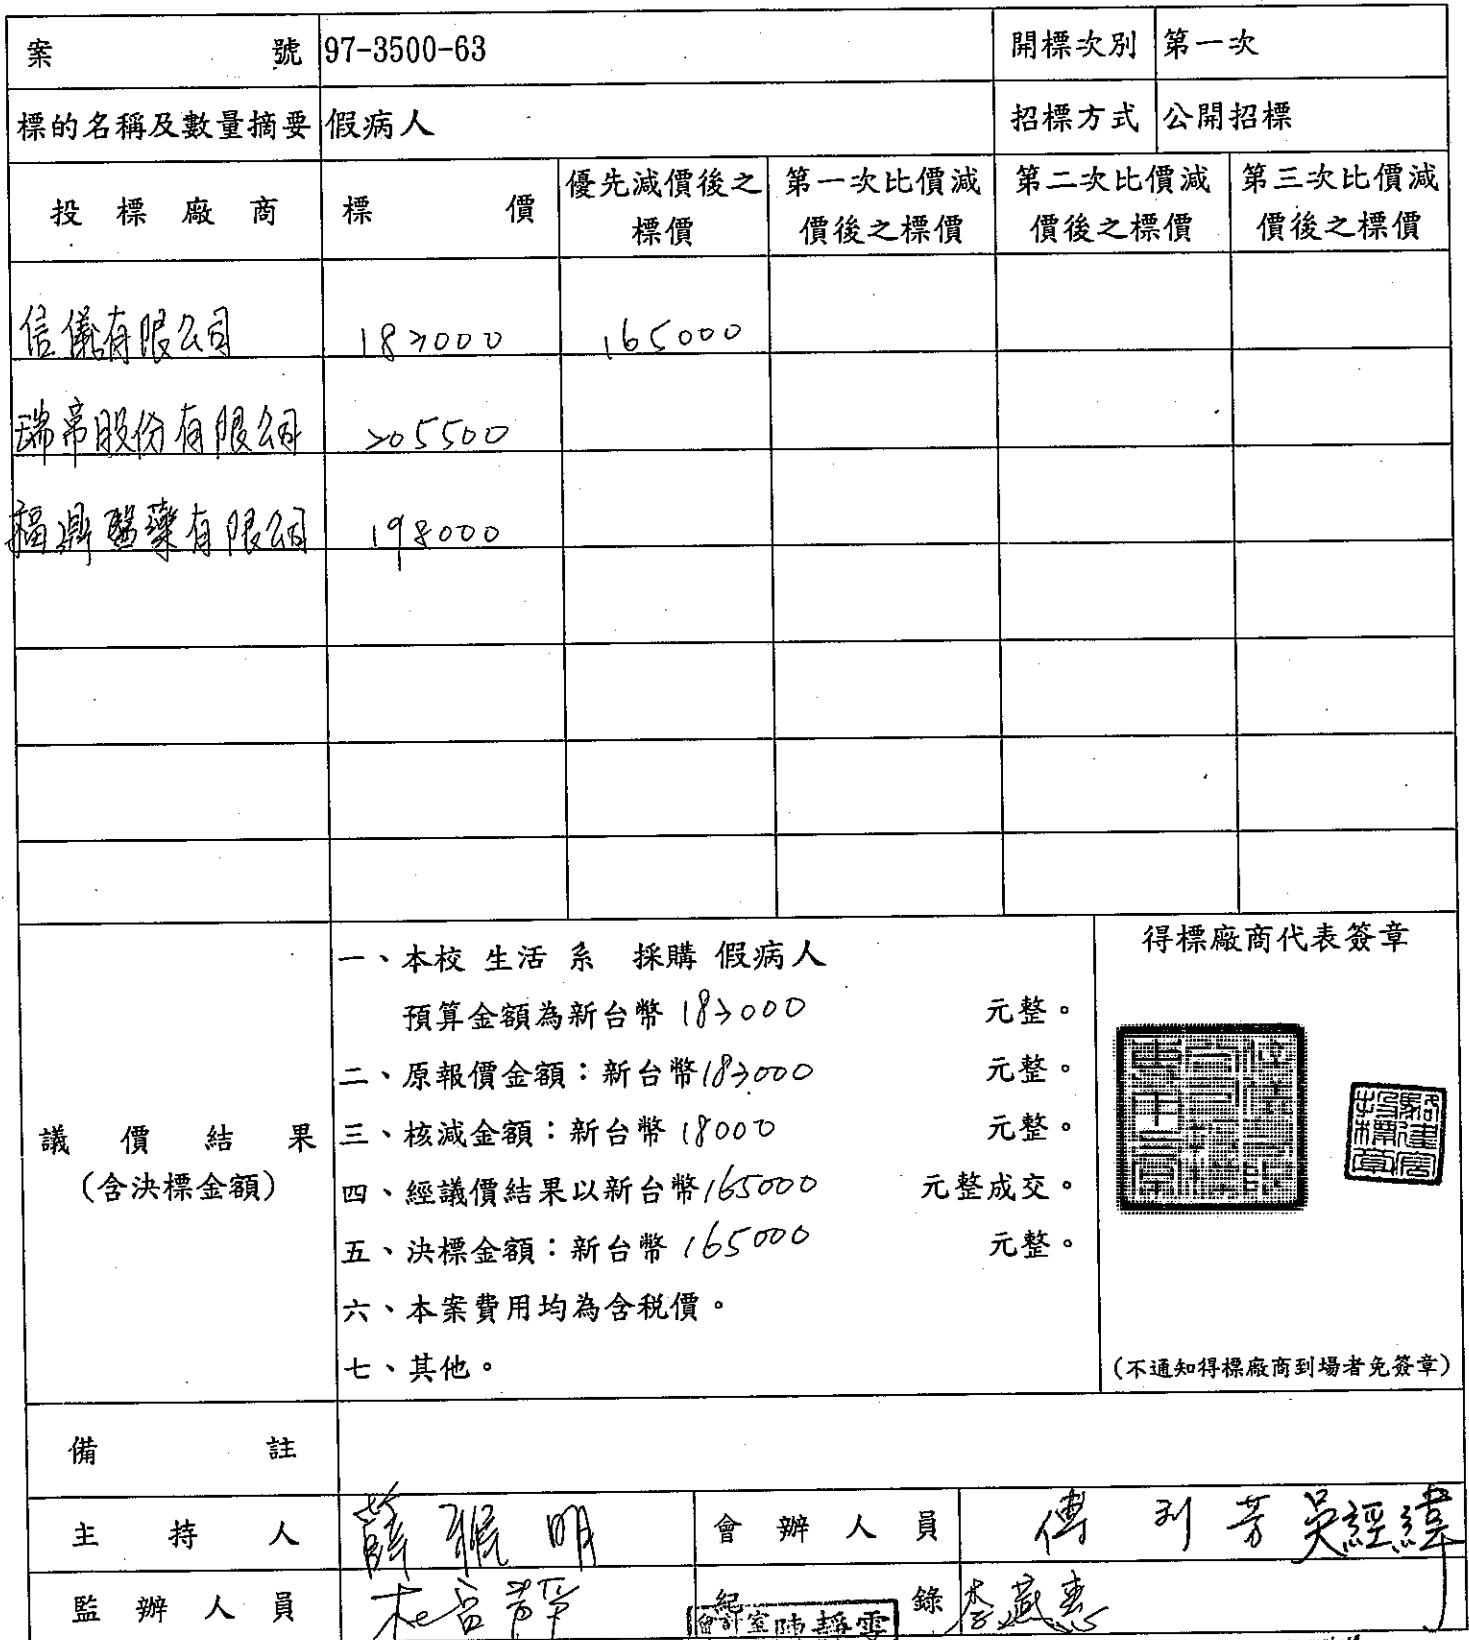 案 號 97-3500-63 開標次別 第一次
標的名稱及數量摘要 假病人 招標方式 公開招標
投標廠商 標 價 優先減價後之標價 第一次比價減價後之標價 第二次比價減價後之標價 第三次比價減價後之標價
信儀有限公司 183000 165000
瑞帝股份有限公司 205500
福鼎醫藥有限公司 198000
議 價 結 果
(含決標金額)
一、本校 生活 系 採購 假病人
預算金額為新台幣 183000 元整。
二、原報價金額：新台幣 183000 元整。
三、核減金額：新台幣 18000 元整。
四、經議價結果以新台幣 165000 元整成交。
五、決標金額：新台幣 165000 元整。
六、本案費用均為含稅價。
七、其他。
得標廠商代表簽章
(不通知得標廠商到場者免簽章)
備 註
主 持 人 會 辦 人 員 吳經緯
監 辦 人 員 紀 錄
會計室陳靜雯